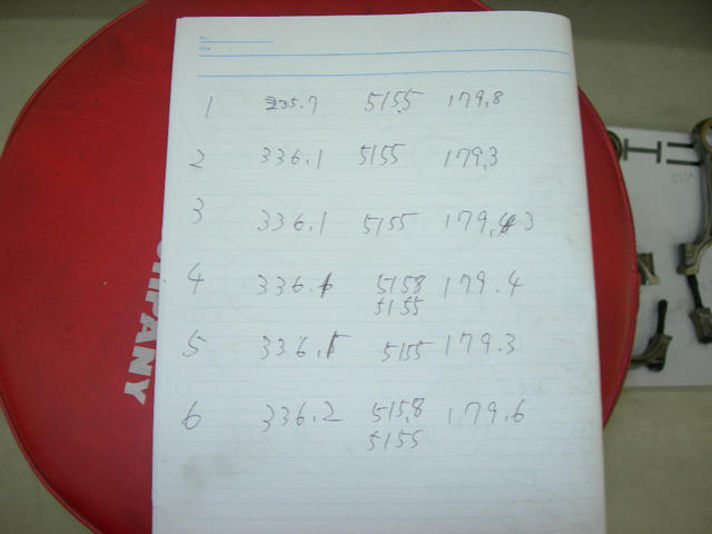 1 335.7 5155 179.8
2 336.1 5155 179.3
3 336.1 5155 179.3
4 336.1 5158 179.4
5155
5 336.1 5155 179.3
6 336.2 5158 179.6
5155
MPANY